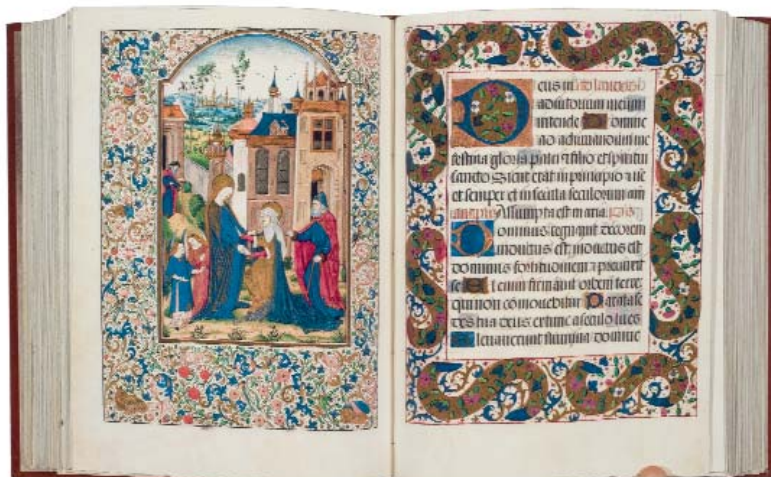 eus in
adiutorium meum
intende Domine
ad adiuvandum me
festina gloria patri et filio et spiritui
sancto Sicut erat in principio et nūc
et semper et in secula seculorum am
Assumpta est maria
Dominus regnavit decorem
indutus est indutus est
dominus fortitudinem et precinxit
se Etenim firmavit orbem terre
qui non cōmovebitur Parata se
des tua deus ex tunc a seculo tu es
Elevaverunt flumina domine